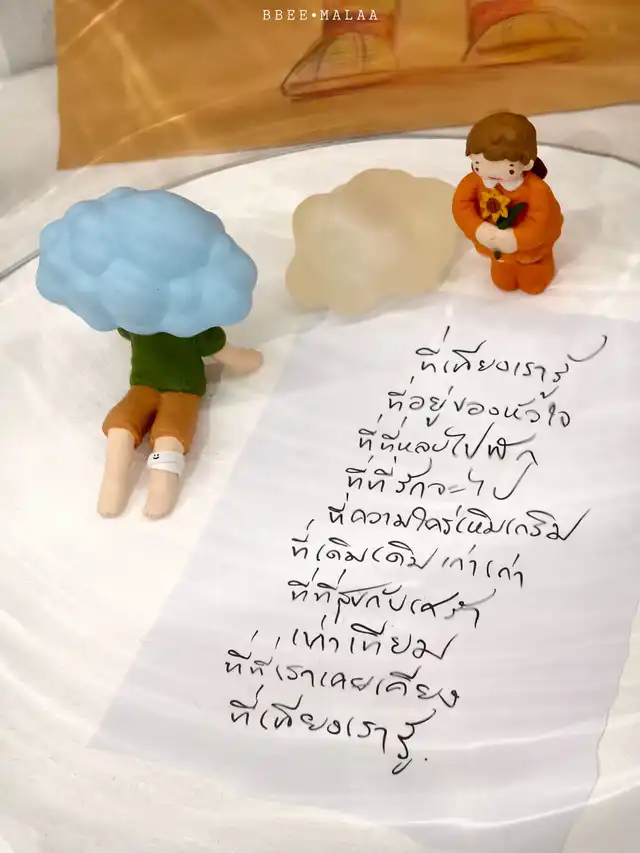 BBEE•MALAA
ที่เพียงเรารู้
ที่อยู่ของหัวใจ
ที่ที่หลบไปพัก
ที่ที่รักจะไป
ที่ความใคร่เหิมเกริม
ที่เดิมเดิม เก่าเก่า
ที่ที่สุขกับเศร้า
เท่าเทียม
ที่ที่เราเคยเคียง
ที่เพียงเรารู้.